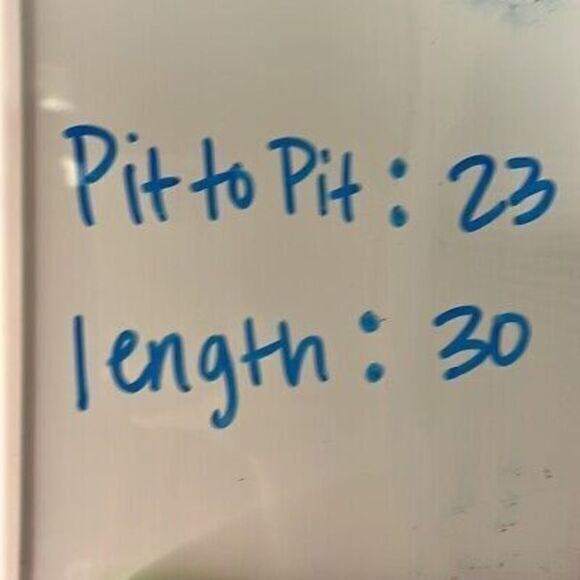 Pit to Pit: 23
length: 30